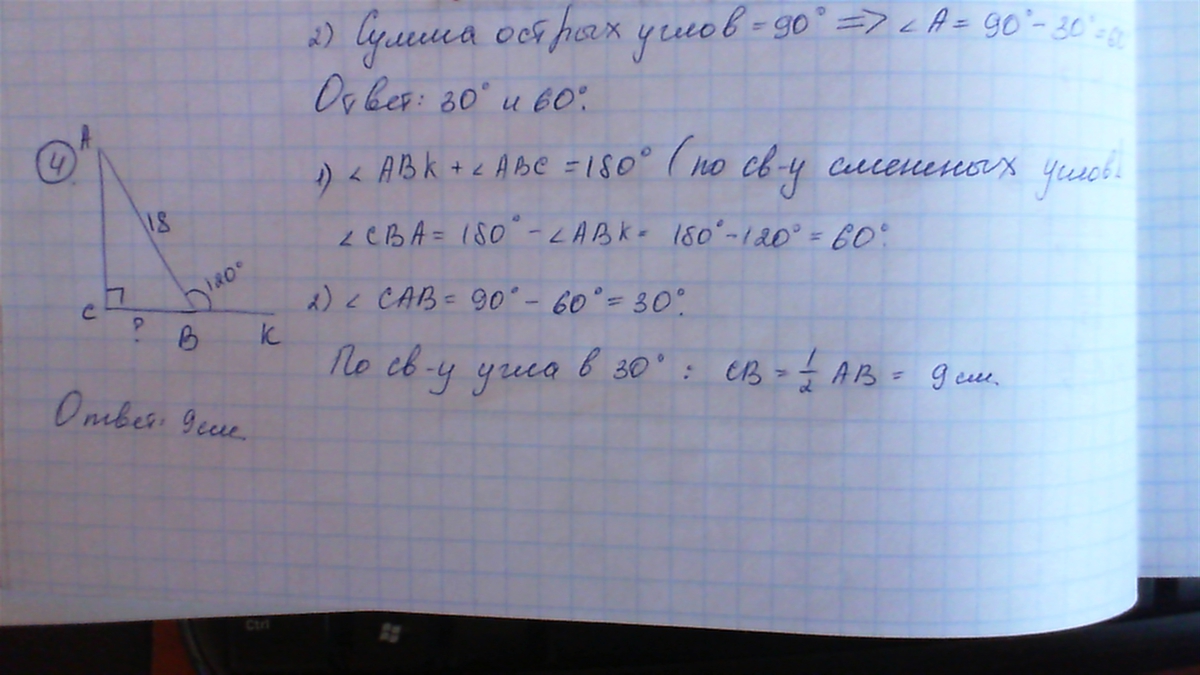 2) Сумма острых углов = 90° => ∠A = 90° - 30° = 60
Ответ: 30° и 60°.
4
A
18
120°
C
?
B
K
1) ∠ABK + ∠ABC = 180° (по св-у смежных углов)
∠CBA = 180° - ∠ABK = 180° - 120° = 60°.
2) ∠CAB = 90° - 60° = 30°.
По св-у угла в 30° : CB = 1/2 AB = 9 см.
Ответ: 9 см.
Ctrl